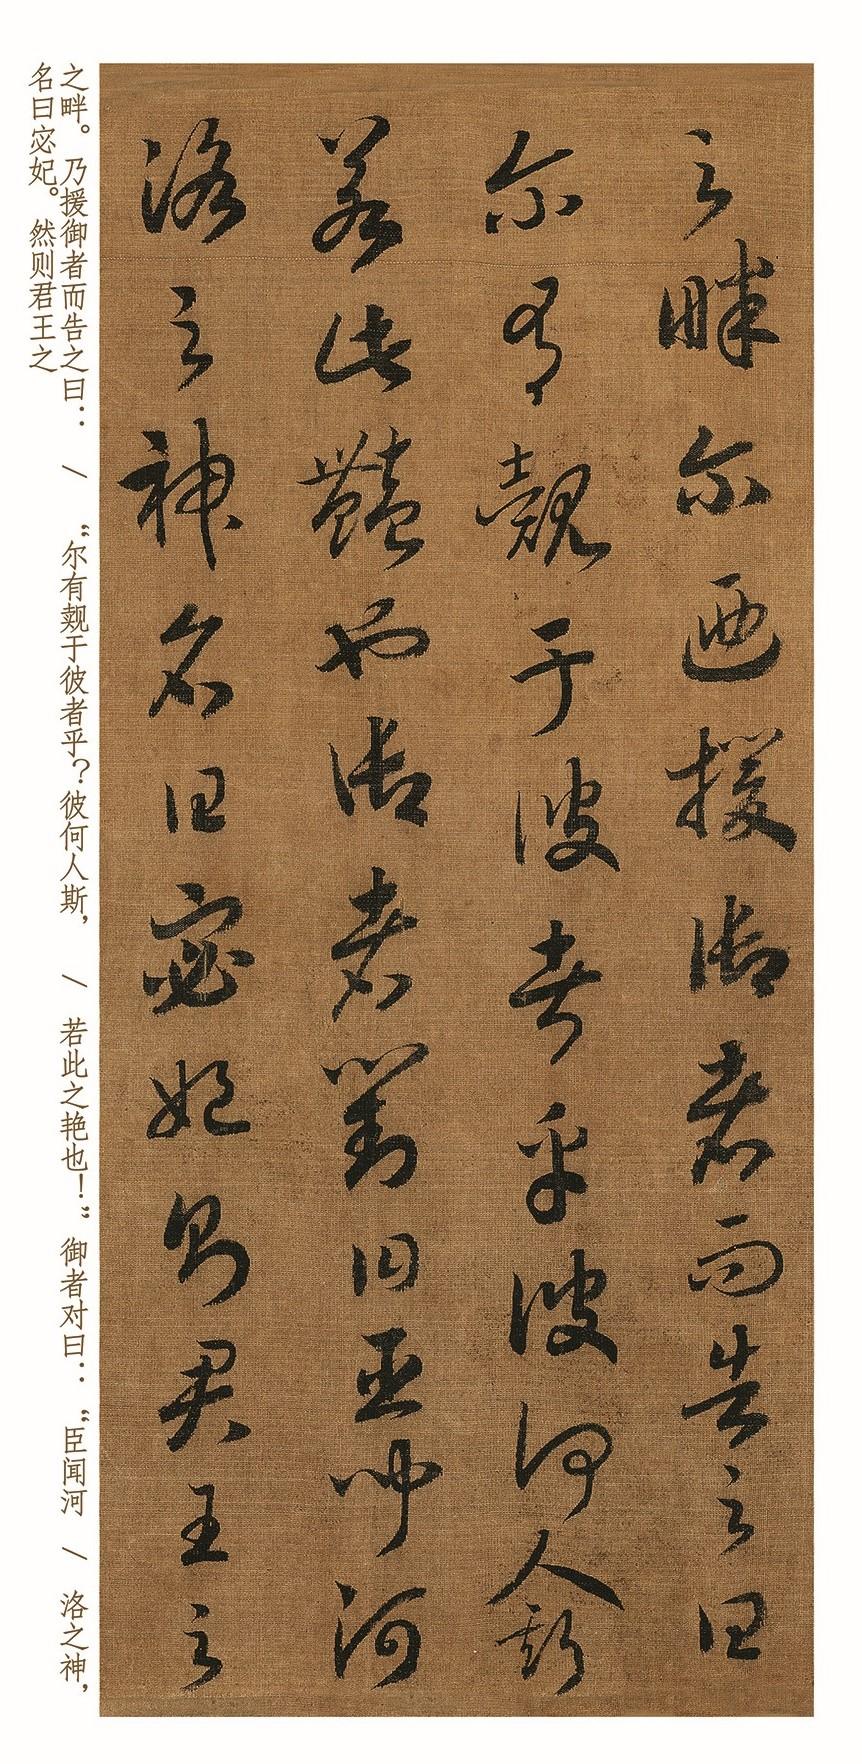 之畔尔迺援御者而告之曰
尔有覿于彼者乎彼何人斯
若此艷也御者對曰臣聞河
洛之神名曰宓妃則君王之
之畔。乃援御者而告之曰： / “尔有觌于彼者乎？彼何人斯， / 若此之艳也！”御者对曰：“臣闻河 / 洛之神，
名曰宓妃。然则君王之